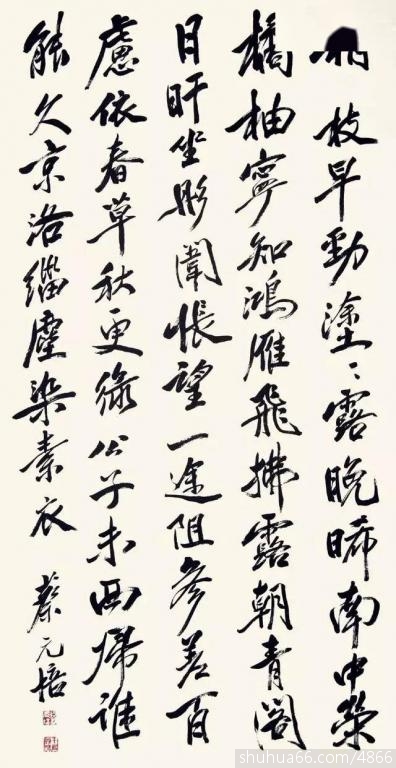 枝早勁塗〻露晚晞南中榮
橘柚寧知鴻雁飛拂露朝青閣
日旰坐彤闈悵望一途阻參差百
慮依春草秋更綠公子未西歸誰
能久京洛緇塵染素衣
蔡元培
shuhua66.com/4866